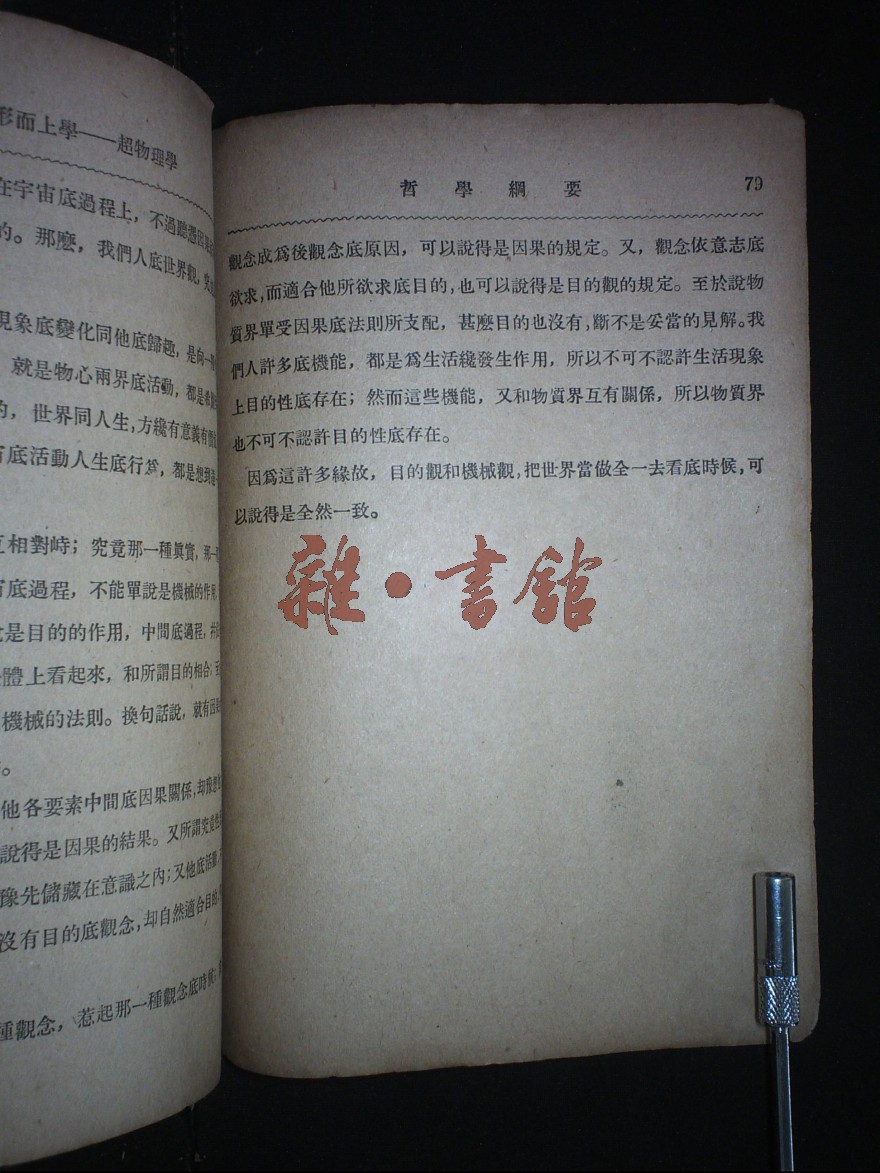 形而上學——超物理學
在宇宙底過程上，不過聽憑因果
的。那麼，我們人底世界觀，
現象底變化同他底歸趣，是向一
就是物心兩界底活動，都是希
的，世界同人生，方纔有意義有價
底活動人生底行爲，都是想到
互相對峙；究竟那一種眞實，那一
底過程，不能單說是機械的作用，
是目的的作用，中間底過程，
體上看起來，和所謂目的相合；至
機械的法則。換句話說，就有因
。
他各要素中間底因果關係，却豫想
說得是因果的結果。又所謂究竟
豫先儲藏在意識之內；又他底活動，
沒有目的底觀念，却自然適合目的，
種觀念，惹起那一種觀念底時候，
哲學綱要 79
觀念成爲後觀念底原因，可以說得是因果的規定。又，觀念依意志底
欲求，而適合他所欲求底目的，也可以說得是目的觀的規定。至於說物
質界單受因果底法則所支配，甚麼目的也沒有，斷不是妥當的見解。我
們人許多底機能，都是爲生活纔發生作用，所以不可不認許生活現象
上目的性底存在；然而這些機能，又和物質界互有關係，所以物質界
也不可不認許目的性底存在。
因爲這許多緣故，目的觀和機械觀，把世界當做全一去看底時候，可
以說得是全然一致。
雜·書館